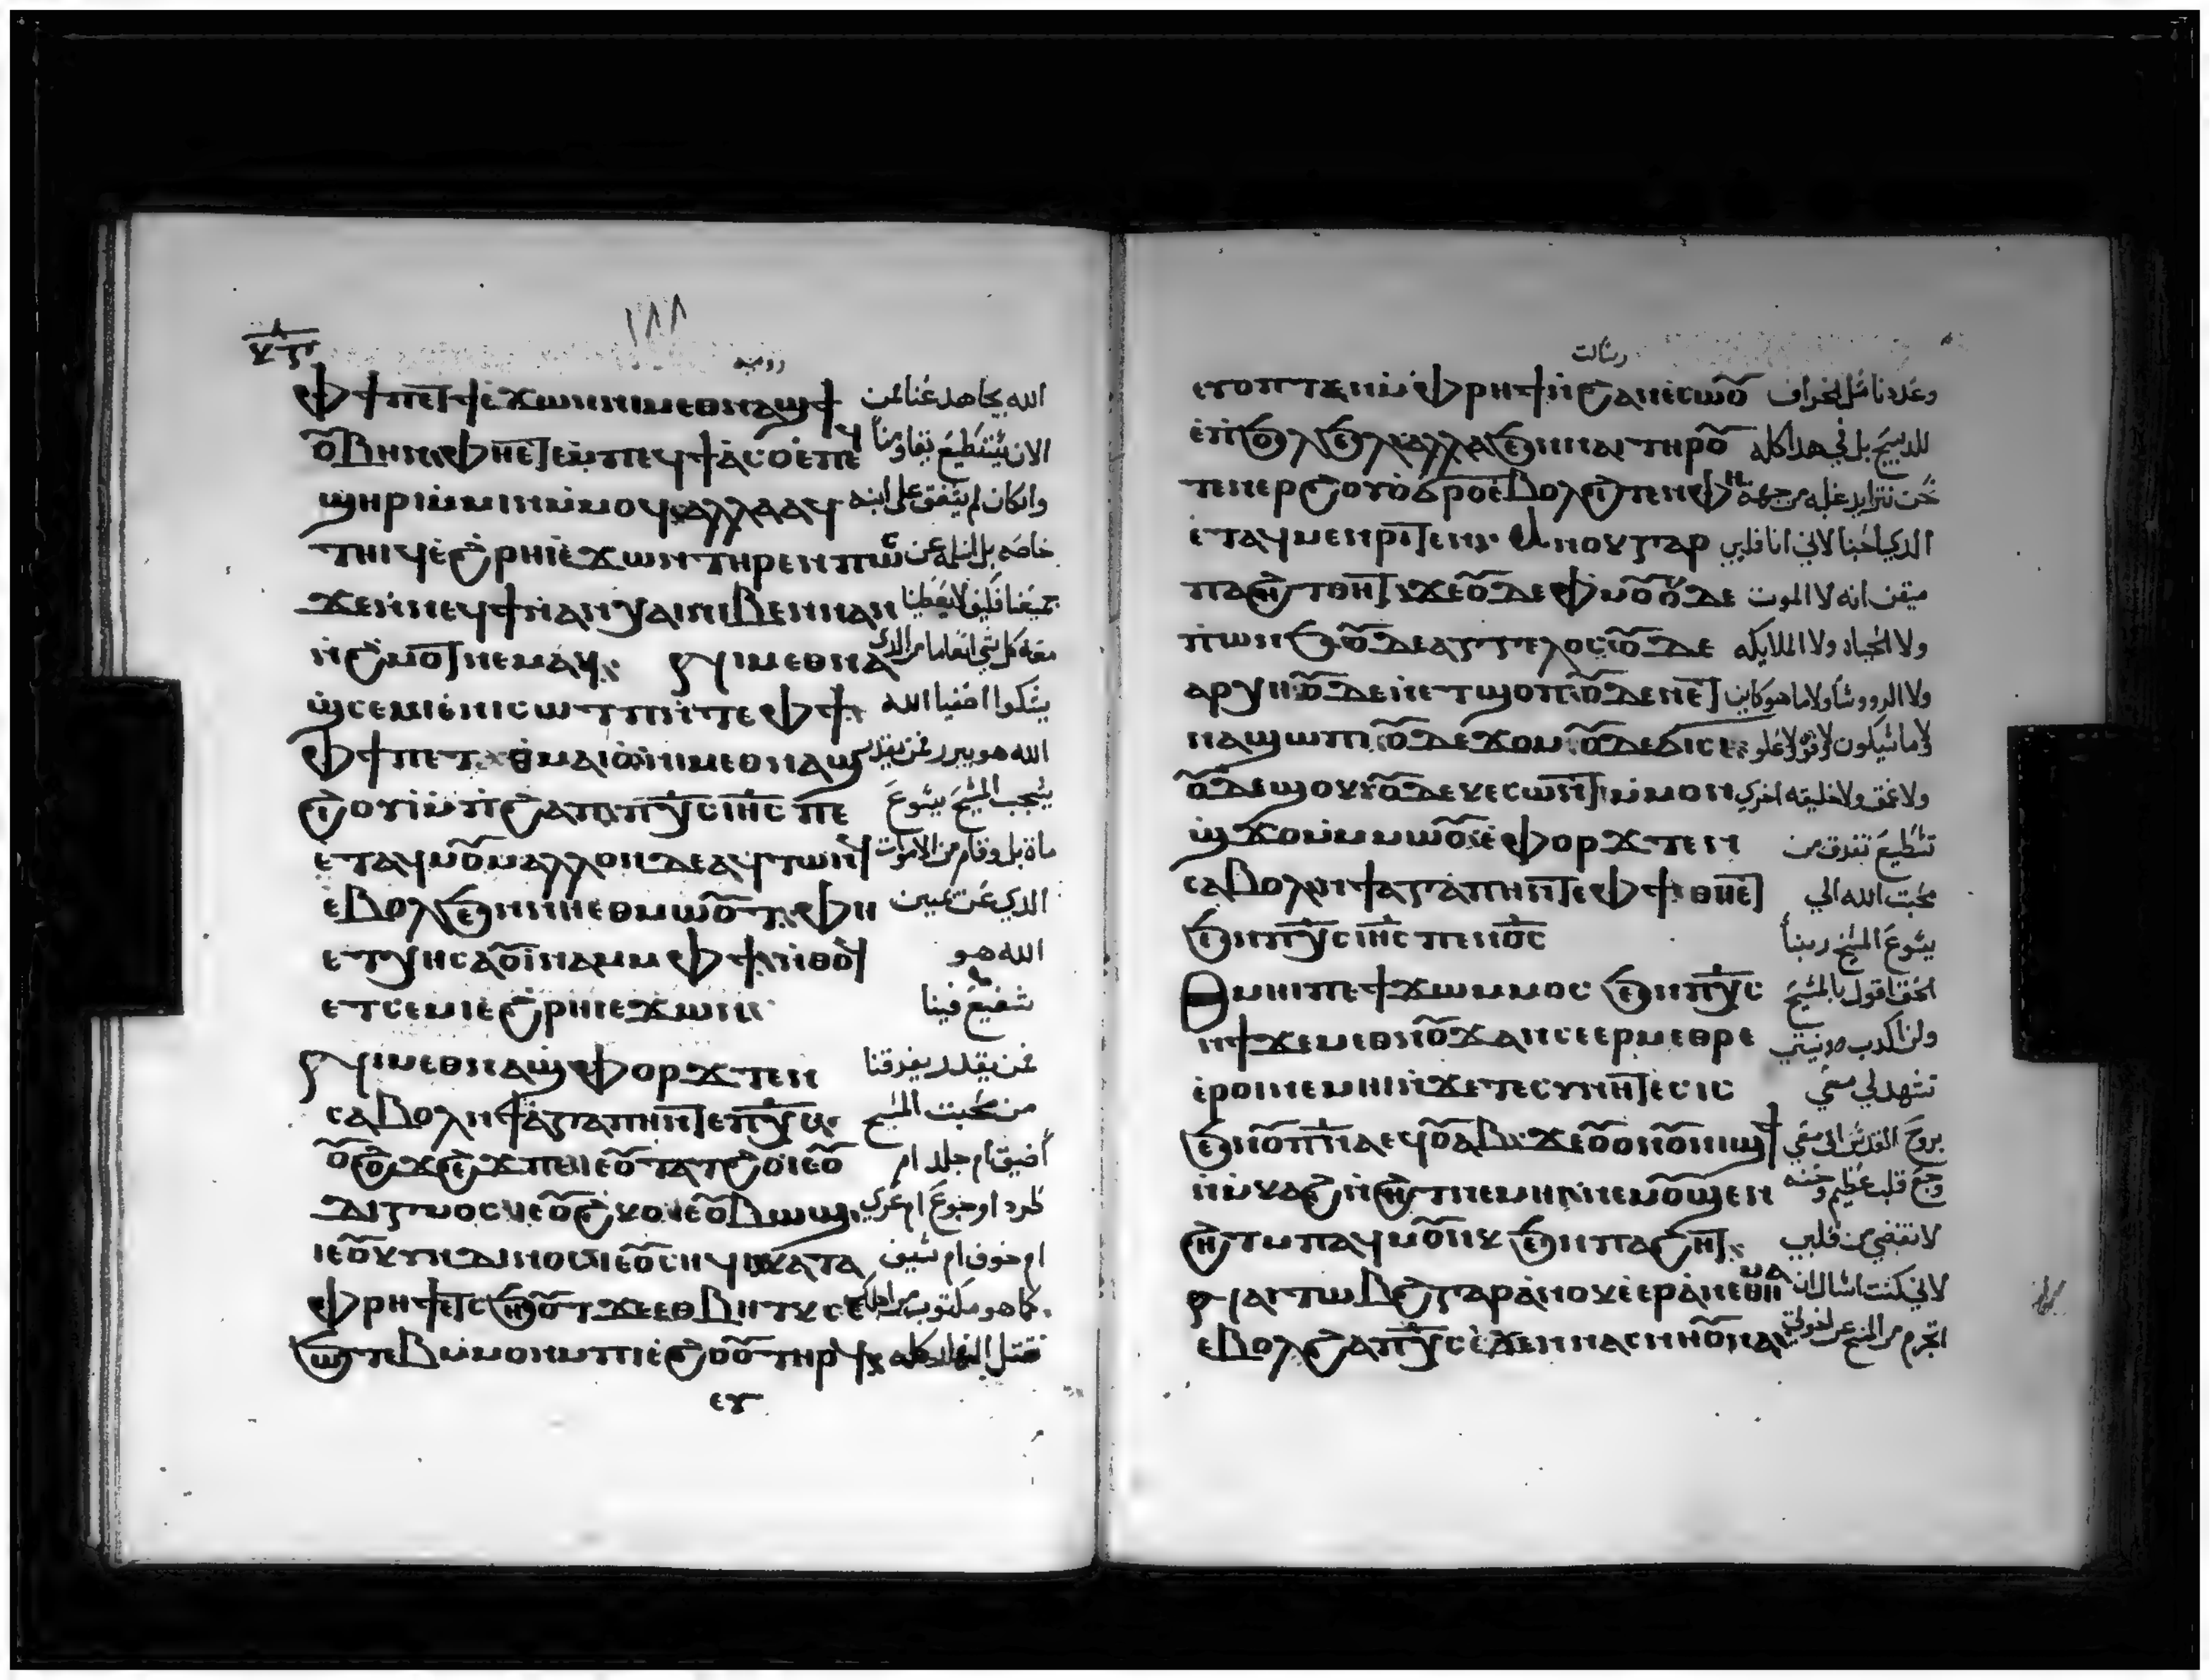 ١٨٨
روميه
ⲫϯⲡⲉⲧϯⲉϫⲱⲛⲛⲓⲙⲉⲑⲛⲁϣϯ الله يجاهد عنا لمن
ⲟⲩⲃⲏⲛ ⲫⲏⲉⲧⲉⲙⲡⲉϥϯⲁⲥⲟⲉⲡⲉϥ الان يستطيع يقاومنا
ϣⲏⲣⲓⲙⲙⲓⲛⲙⲙⲟϥ ⲁⲗⲗⲁⲁϥ وان كان لم يشفق على ابنه
ⲧⲏⲓϥⲉϩⲣⲏⲓⲉϫⲱⲛⲧⲏⲣⲉⲛⲡⲱⲥ خاصه بل اسلمه عن
ϫⲉⲛⲛⲉϥϯⲛⲁⲛⲭⲁⲓⲛⲓⲃⲉⲛⲛⲁⲛ جميعنا فكيف لا يعطينا
ⲛϩⲙⲟⲧⲛⲉⲙⲁϥ ⲛⲓⲙⲉⲑⲛⲁ معه كل شي انعاما من الذي
ϣⲥⲉⲙⲓⲉⲛⲓⲥⲱⲧⲡⲛⲧⲉⲫϯ يشكوا اصفيا الله
ⲫϯⲡⲉⲧⲑⲙⲁⲓⲟⲛⲓⲙⲉⲑⲛⲁϣ الله هو يبرر فمن يقدر
ϩⲓⲟⲩⲓⲙⲡϩⲁⲡ ⲡⲭⲥ ⲓⲏⲥ ⲡⲉ يشجب المسيح يسوع
ⲉⲧⲁϥⲙⲟⲩ ⲙⲁⲗⲗⲟⲛⲇⲉⲁϥⲧⲱⲛϥ ماة بل وقام من الاموات
ⲉⲃⲟⲗϧⲉⲛⲛⲏⲉⲑⲙⲱⲟⲩⲧ ⲫⲏ الدي عن يمين
ⲉⲧⲭⲏⲥⲁⲟⲩⲓⲛⲁⲙⲙⲫϯ ⲛⲑⲟϥ الله هو
ⲉⲧⲥⲉⲙⲓⲉϩⲣⲏⲓⲉϫⲱⲛ شفيع فينا
ⲛⲓⲙⲉⲑⲛⲁϣⲫⲟⲣϫⲧⲉⲛ فمن يقدر يفرقنا
ⲥⲁⲃⲟⲗⲛϯⲁⲅⲁⲡⲏⲛⲧⲉⲡⲭⲥ من محبت المسيح
ⲟⲩϩⲟϫϩⲉϫⲡⲉ ⲓⲉⲟⲩⲧⲁⲧϩⲟⲓⲉⲟⲩ أضيق ام جلد ام
ⲇⲓⲅⲙⲟⲥ ⲓⲉⲟⲩϩⲕⲟ ⲓⲉⲟⲩⲃⲱϣ طرد او جوع ام عري
ⲓⲉⲟⲩⲕⲩⲛⲇⲓⲛⲟⲥ ⲓⲉⲟⲩⲥⲏϥⲓ ⲕⲁⲧⲁ ام خوف ام سيف
ⲫⲣⲏϯⲉⲧⲥϧⲏⲟⲩⲧϫⲉⲉⲑⲃⲏⲧⲕⲥⲉ كما هو مكتوب من اجلك
ϧⲱⲧⲉⲃⲙⲙⲟⲛⲙⲡⲓⲉϩⲟⲟⲩⲧⲏⲣϥ نقتل النهار كله
ⲉⲩ
رسالت
ⲉⲧⲟⲡⲧⲉⲛⲙⲫⲣⲏϯⲛϩⲁⲛⲉⲥⲱⲟⲩ وعددنا مثل الخراف
ⲉⲡϧⲟⲗϧⲉⲗ ⲁⲗⲗⲁϧⲉⲛⲛⲁⲓⲧⲏⲣⲟⲩ للدبيح بل في هدا كله
ⲧⲉⲛⲉⲣϩⲟⲩⲟϭⲣⲟⲉⲃⲟⲗϩⲓⲧⲉⲛⲫⲏ نحن نتزايد غلبه من جهة
ⲉⲧⲁϥⲙⲉⲛⲣⲓⲧⲉⲛ ⲁⲛⲟⲕⲅⲁⲣ الدي احبنا لاني انا قلبي
ⲡⲁϩⲏⲧⲑⲏⲧ ϫⲉⲟⲩⲇⲉⲫⲙⲟⲩ ⲟⲩⲇⲉ ميقن انه لا الموت
ⲡⲱⲛϧ ⲟⲩⲇⲉⲁⲅⲅⲉⲗⲟⲥ ⲟⲩⲇⲉ ولا الحياه ولا الملايكه
ⲁⲣⲭⲏ ⲟⲩⲇⲉⲛⲉⲧϣⲟⲡ ⲟⲩⲇⲉⲛⲉⲧ ولا الرووسا ولا ما هو كاين
ⲛⲁϣⲱⲡⲓ ⲟⲩⲇⲉϫⲟⲙ ⲟⲩⲇⲉϭⲓⲥⲓ لا ما سيكون لا قوه لا علو
ⲟⲩⲇⲉϣⲱⲕ ⲟⲩⲇⲉⲕⲉⲥⲱⲛⲧ ⲙⲙⲟⲛ ولا عمق ولا خليقه اخري
ϣϫⲟⲙⲙⲙⲱⲟⲩ ⲉⲫⲟⲣϫⲧⲉⲛ تستطيع تفرق من
ⲥⲁⲃⲟⲗⲛϯⲁⲅⲁⲡⲏⲛⲧⲉⲫϯ ⲑⲏⲉⲧ محبت الله الي
ϧⲉⲛⲡⲭⲥ ⲓⲏⲥ ⲡⲉⲛⲟⲥ يسوع المسيح ربنا
ⲑⲙⲏⲓⲡⲉϯϫⲱⲙⲙⲟⲥ ϧⲉⲛⲡⲭⲥ الحق اقول بالمسيح
ⲛϯϫⲉⲙⲉⲑⲛⲟⲩϫⲁⲛⲥⲉⲉⲣⲙⲉⲑⲣⲉ ولن اكدب ونيتي
ⲉⲣⲟⲓⲛⲉⲙⲏⲓⲛϫⲉⲧⲉⲥⲩⲛⲏⲧⲉⲥⲓⲥ تشهد لي معي
ϧⲉⲛⲟⲩⲡⲛⲁⲉϥⲟⲩⲁⲃ ϫⲉⲟⲩⲟⲛⲟⲩⲛⲓϣϯ بروح القدس ان معي
ⲙⲙⲕⲁϩⲛϩⲏⲧⲛⲉⲙⲏⲓ ⲛⲉⲙⲟⲩϣⲉⲛ وجع قلب عظيم وحسنه
ϩⲏⲧⲙⲡⲁϥⲙⲟⲩⲛⲕ ϧⲉⲛⲡⲁϩⲏⲧ لا تنقضي من قلبي
ⲛⲁⲓⲧⲱⲃϩⲅⲁⲣⲁⲛⲟⲕⲉⲉⲣⲁⲛⲁⲑⲉⲙⲁ لاني كنت اسال ان
ⲉⲃⲟⲗϩⲁⲡⲭⲥ ⲉϫⲉⲛⲛⲁⲥⲛⲏⲟⲩⲛⲁ اتحرم من المسيح عن اخوتي